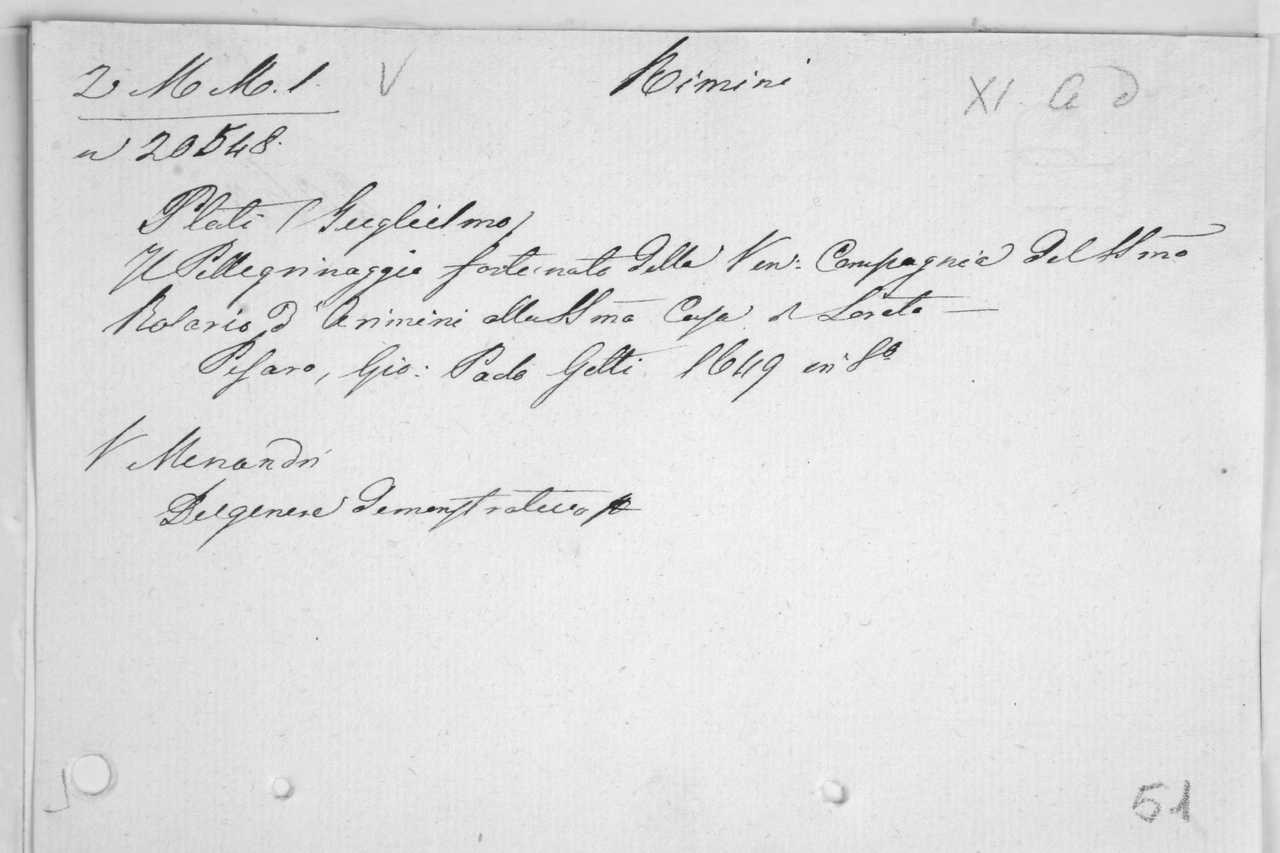 2 M M. 1. V Rimini XI a d
n 20548.
Plati (Guglielmo)
Il Pellegrinaggio fortunato della Ven: Compagnia del SSmo
Rosario d'Arimini alla SSma Casa di Loreto —
Pesaro, Gio: Paolo Gotti 1649 in 8º
V Menandri
Del genere demonstrativo
51